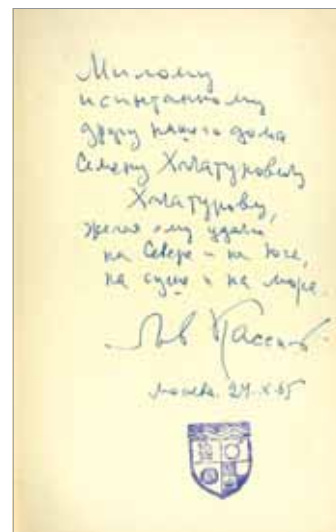 Милому
испытанному
другу нашего дома
Семену Хачатуровичу
Хачатурову,
желая ему удачи
на Севере и на Юге,
на суше и на море.
Лев Кассиль
Москва. 24.X.65